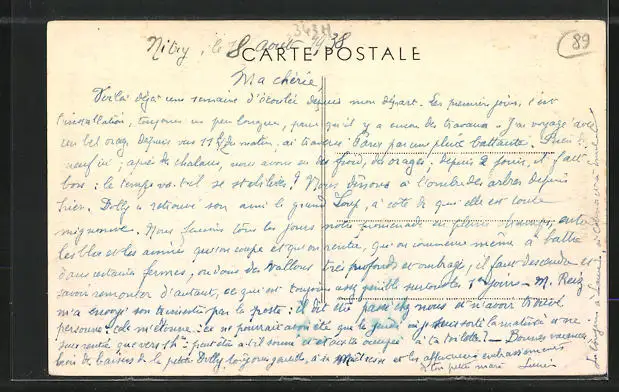 Nitry, le 8 août 1938
343H
89
CARTE POSTALE
Ma chérie,
Voilà déjà une semaine d'écoulée depuis mon départ. Les premiers jours, c'est
l'installation, toujours un peu longue, parce qu'il y a encore des travaux. J'ai voyagé avec
un bel orage depuis vers 11h du matin, ai traversé Paris par une pluie battante. Rien de
neuf ici ; après des chaleurs, nous avons eu des froid, des orages ; depuis 2 jours, il fait
bon : le temps va-t-il se stabiliser ? Nous dînons à l'ombre des arbres depuis
hier. Dolly a retrouvé son ami le grand Loup, à côté de qui elle est toute
mignonne. Nous faisons tous les jours notre promenade en pleins champs, entre
les blés et les avoines qu'on coupe et qu'on rentre, qu'on commence même à battre
dans certaines fermes, ou dans des vallons très profonds et ombragés, il faut descendre et
savoir remonter d'autant, ce qui est toujours assez pénible surtout les 1ers jours — M. Reiz
m'a envoyé son trimestre par la poste : il dit être passé chez nous et n'avoir trouvé
personne : cela m'étonne : ce ne pourrait avoir été que le jeudi où je suis sorti la matinée et ne
suis rentré que vers 1h : peut-être a-t-il sonné et étais-tu occupée à ta toilette ? — Bonnes vacances
bons de baisers de la petite Dolly toujours gentille, à sa Maîtresse et les affectueux embrassements
de ton petit mari Lucien